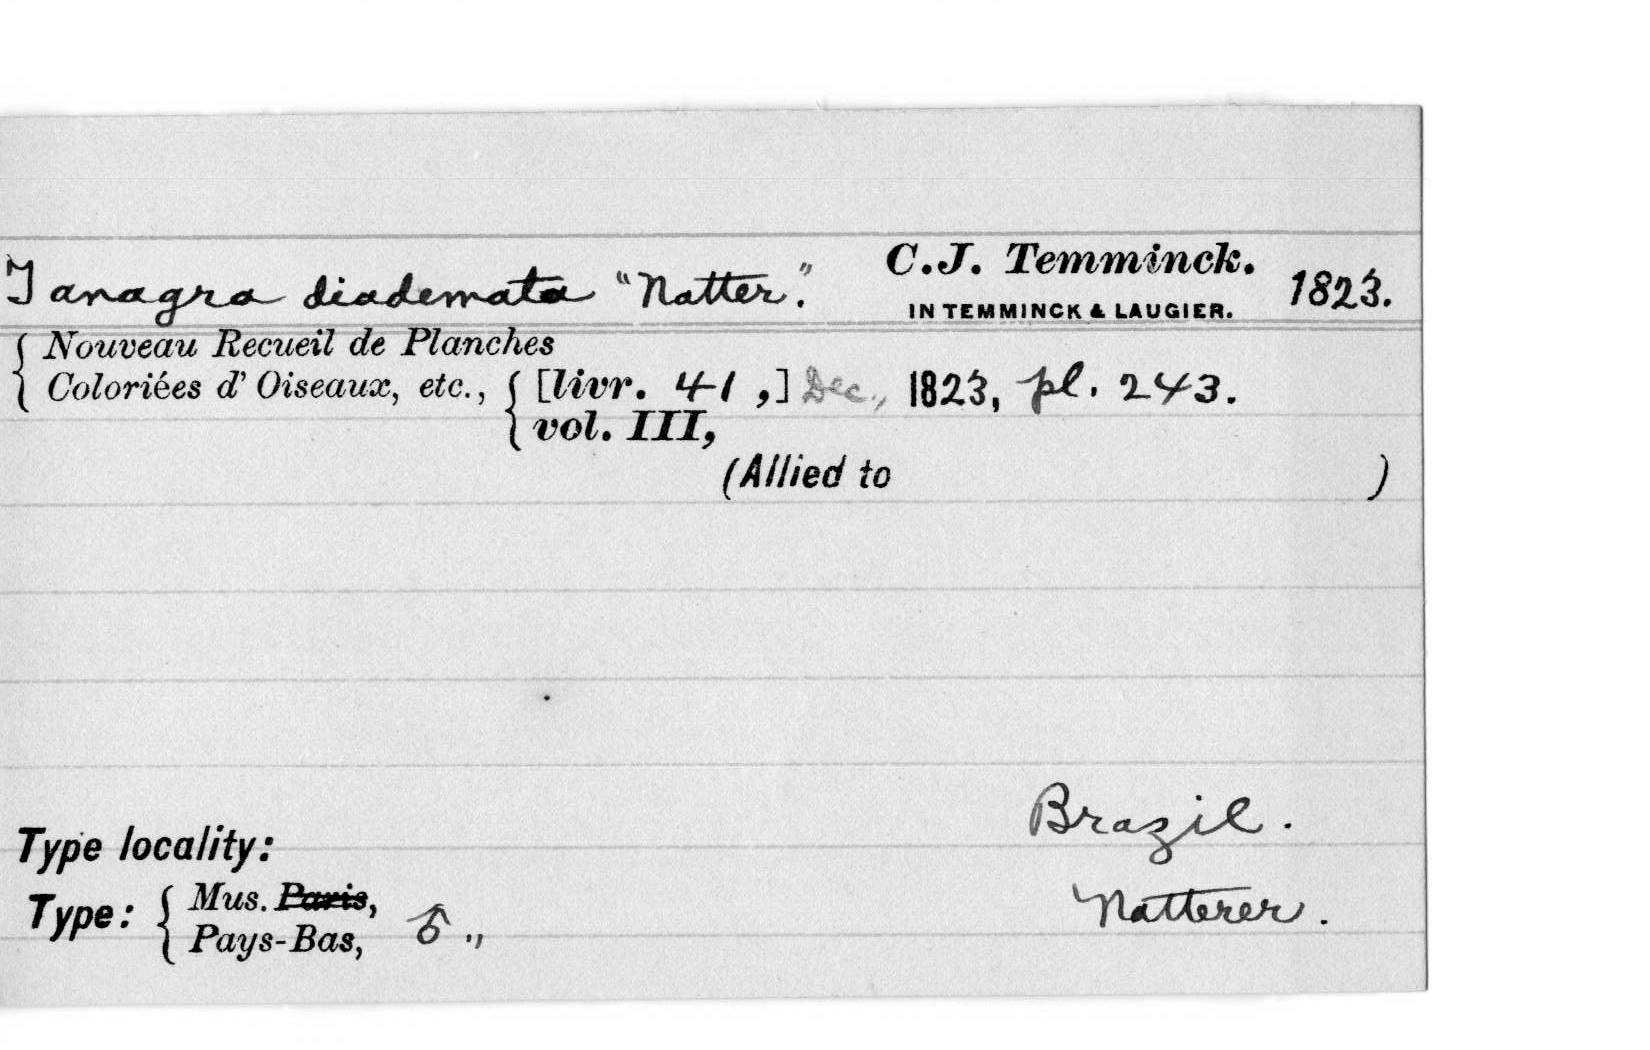 Tanagra diademata "Natter." C.J. Temminck. 1823.
IN TEMMINCK & LAUGIER.
{ Nouveau Recueil de Planches
Coloriées d' Oiseaux, etc., { [livr. 41 ,] Dec., 1823, pl. 243.
vol. III,
(Allied to )
Brazil.
Type locality:
Type: { Mus. Paris, Natterer.
Pays-Bas, ♂ .,,